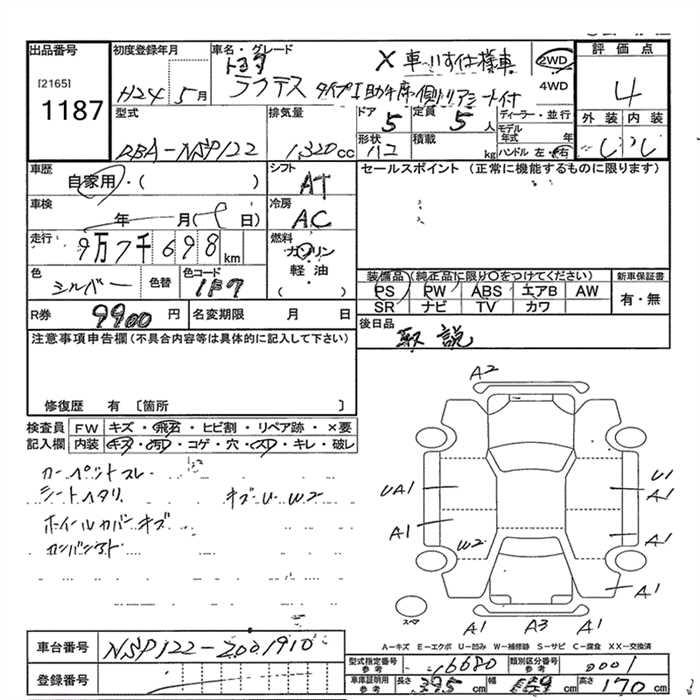 出品番号 初度登録年月 車名・グレード ✕ 車いす仕様車 2WD 評価点
[2165] トヨタ 4WD
1187 H24 5月 ラクティス タイプI助手席側リアシート付 4
型式 排気量 ドア 定員 ディーラー・並行 外装 内装
DBA-NSP122 1,320cc 5 5人 モデル年式 年
形状 積載 kg ハンドル 左・右
車歴 シフト セールスポイント (正常に機能するものに限ります)
自家用・( ) AT
車検 冷房
年 月( 日) AC
走行 燃料
9万7千698km ガソリン
軽油
色 色替 色コード ( ・ )
シルバー 1F7
装備品(純正品に限り○をつけてください) 新車保証書
PS PW ABS エアB AW 有・無
SR ナビ TV カワ
R券 9900円 名変期限 月 日
後日品
取説
注意事項申告欄(不具合内容等は具体的に記入して下さい)
修復歴 有 〔箇所 〕
検査員 FW キズ・飛石・ヒビ割・リペア跡・×要
記入欄 内装 キズ・汚れ・コゲ・穴・スレ・キレ・破レ
カーペットスレ
シートヘタリ キズU W2
ホイールカバーキズ
A2
UA1
A1
W2
U1
A1
A1
A1
スペア
A1 A3 A1
A-キズ E-エクボ U-凹み W-補修跡 S-サビ C-腐食 XX-交換済
車台番号 NSP122-2001910
型式指定番号 参考 16680 類別区分番号 参考 0001
登録番号
車庫証明用 参考 長さ 395cm 幅 169cm 高さ 170cm